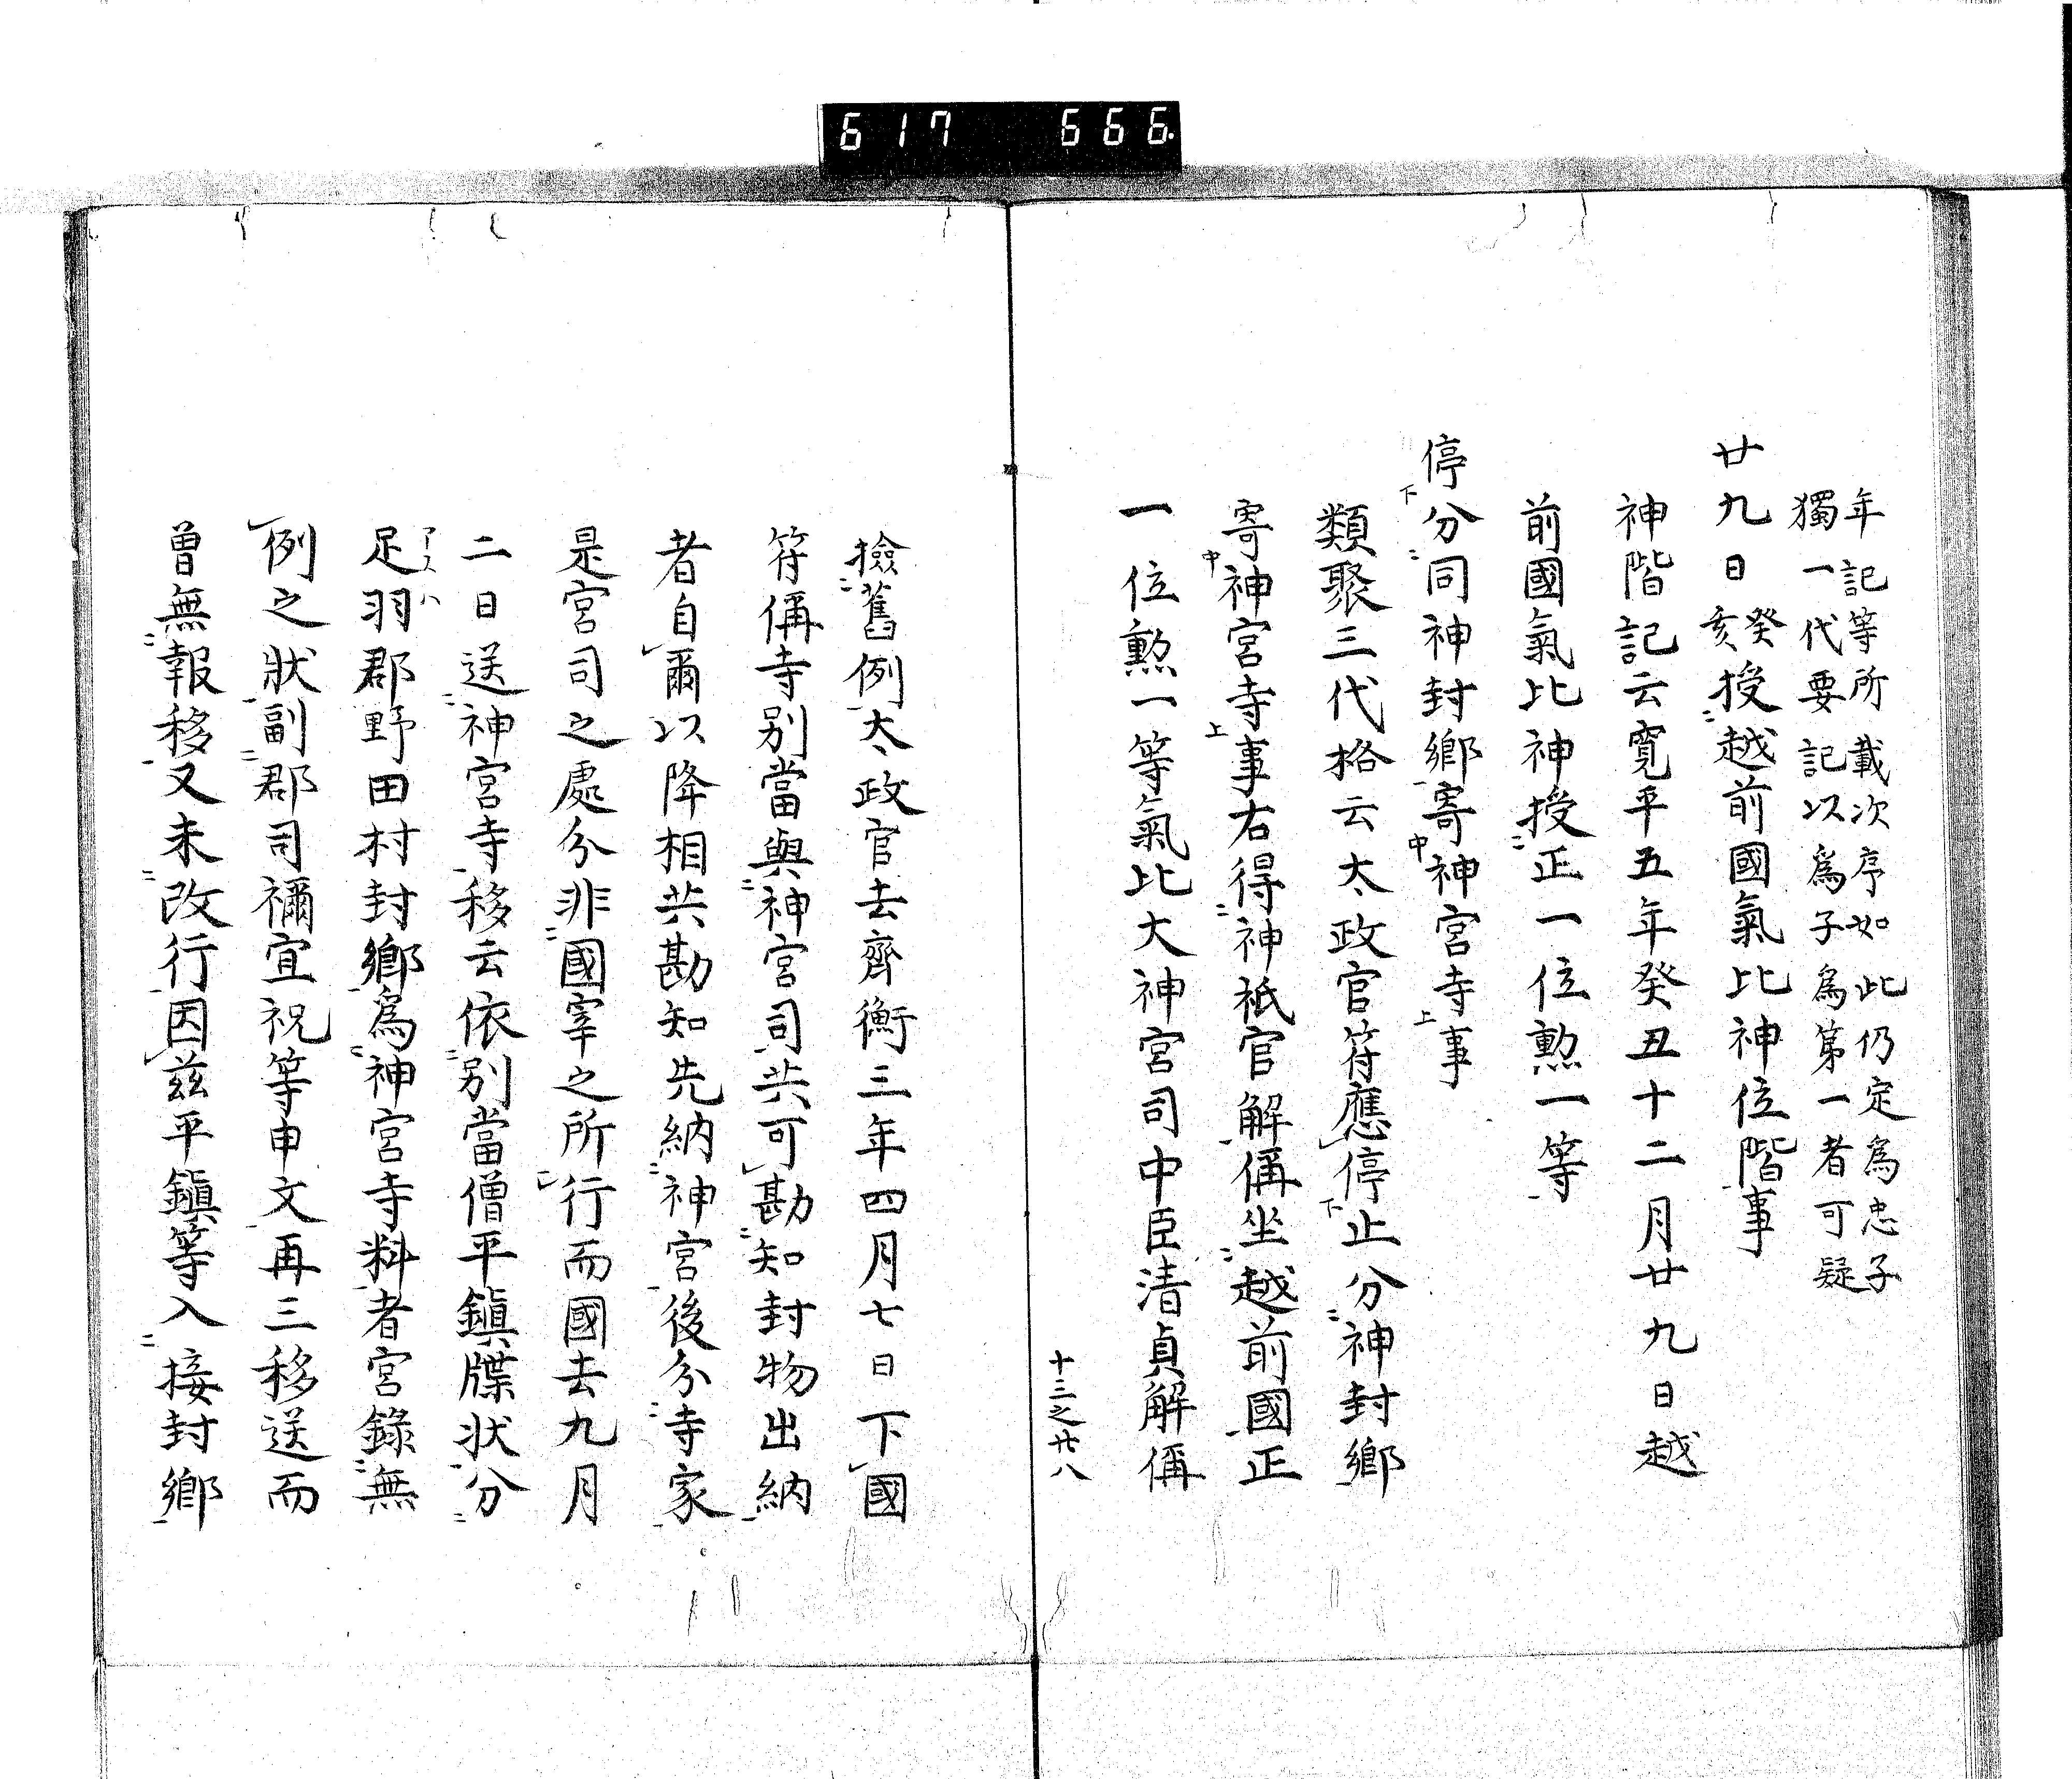 617 666.
年記等所載次序如此仍定爲忠子
獨一代要記以爲子爲第一者可疑
廿九日癸亥授越前國氣比神位階事
神階記云寛平五年癸丑十二月廿九日越
前國氣比神授正一位勲一等
停分同神封鄉寄神宮寺事
類聚三代格云太政官符應停止分神封鄉
寄神宮寺事右得神祇官解偁坐越前國正
一位勲一等氣比大神宮司中臣清貞解偁
十三之廿八
撿舊例太政官去齊衡三年四月七日下國
符偁寺別當與神宮司共可勘知封物出納
者自爾以降相共勘知先納神宮後分寺家
是宮司之處分非國宰之所行而國去九月
二日送神宮寺移云依別當僧平鎭牒状分
足羽郡野田村封鄉爲神宮寺料者宮錄無
アスハ
例之狀副郡司禰宜祝等申文再三移送而
曽無報移又未改行因茲平鎭等入接封鄉